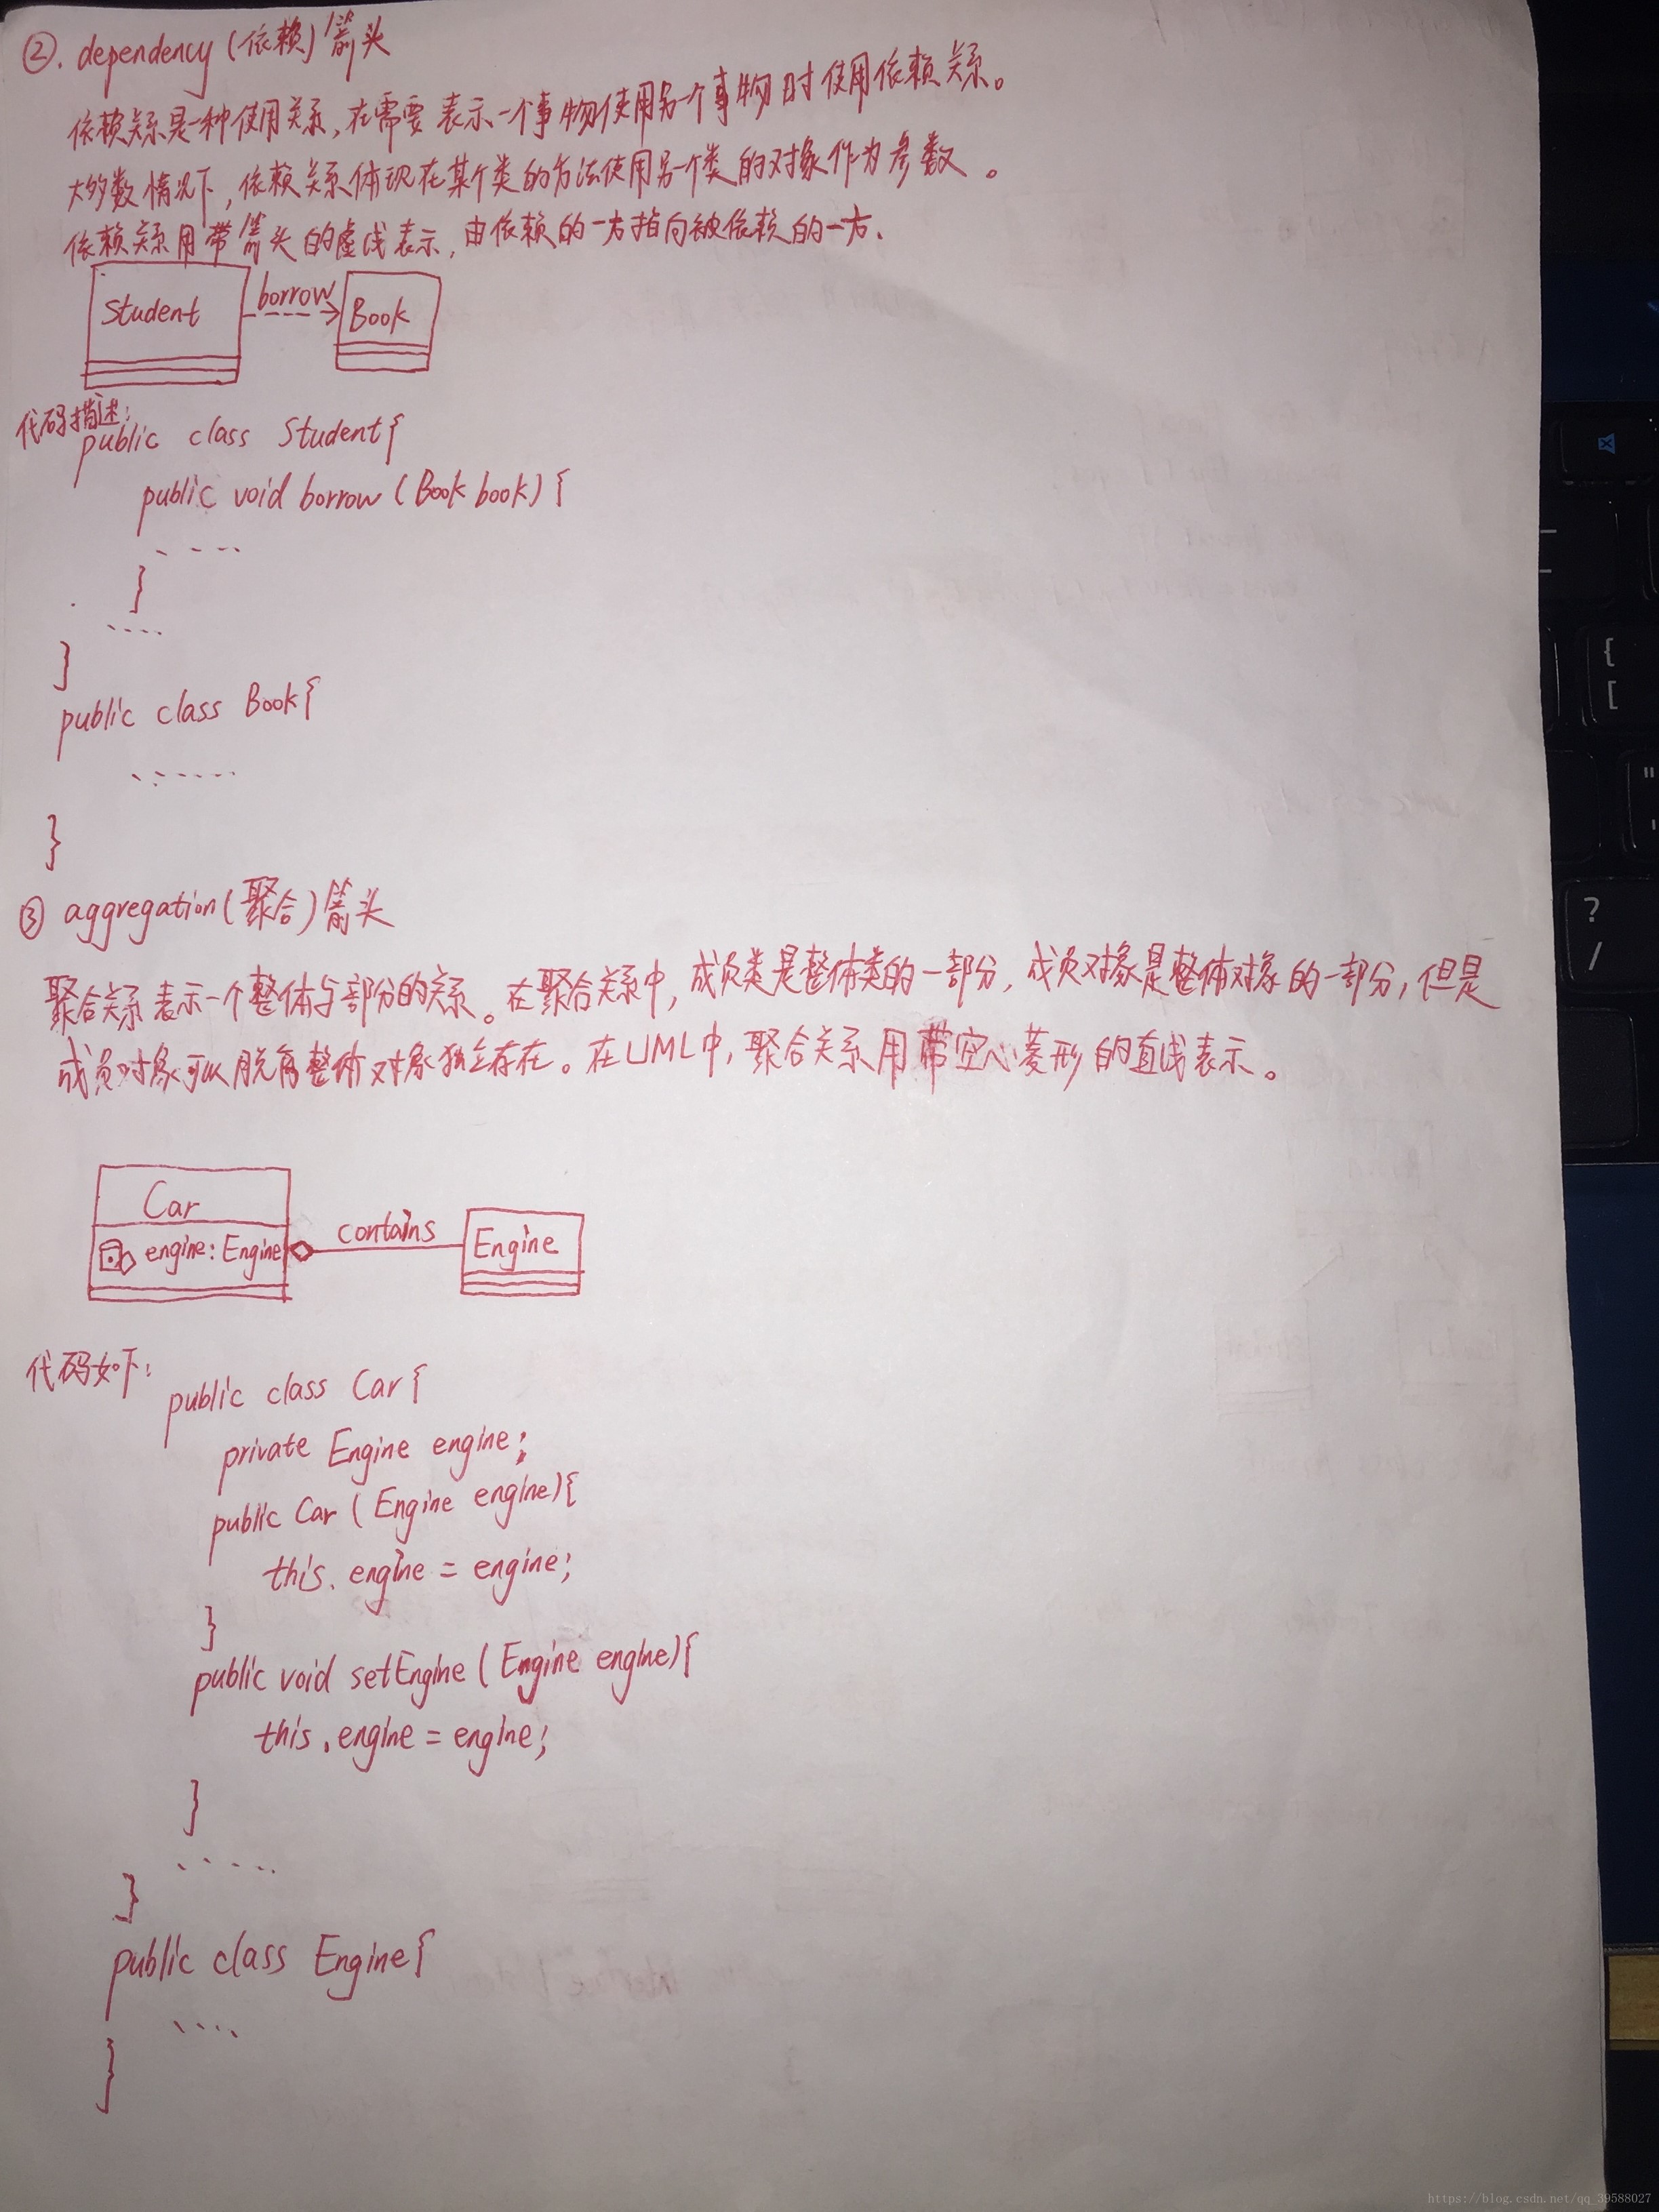 ②. dependency(依赖)箭头
依赖关系是一种使用关系,在需要表示一个事物使用另一个事物时使用依赖关系。
大多数情况下,依赖关系体现在某个类的方法使用另一个类的对象作为参数。
依赖关系用带箭头的虚线表示,由依赖的一方指向被依赖的一方.
Student
borrow
Book
代码描述:
public class Student{
public void borrow (Book book) {
.....
}
.....
}
public class Book{
......
}
③ aggregation(聚合)箭头
聚合关系表示一个整体与部分的关系。在聚合关系中,成员类是整体类的一部分,成员对象是整体对象的一部分,但是
成员对象可以脱离整体对象独立存在。在UML中,聚合关系用带空心菱形的直线表示。
Car
engine: Engine
contains
Engine
代码如下:
public class Car{
private Engine engine;
public Car (Engine engine){
this. engine = engine;
}
public void setEngine (Engine engine){
this. engine = engine;
}
.....
}
public class Engine{
....
}
{
[
"
'
?
/
https://blog.csdn.net/qq_39588027